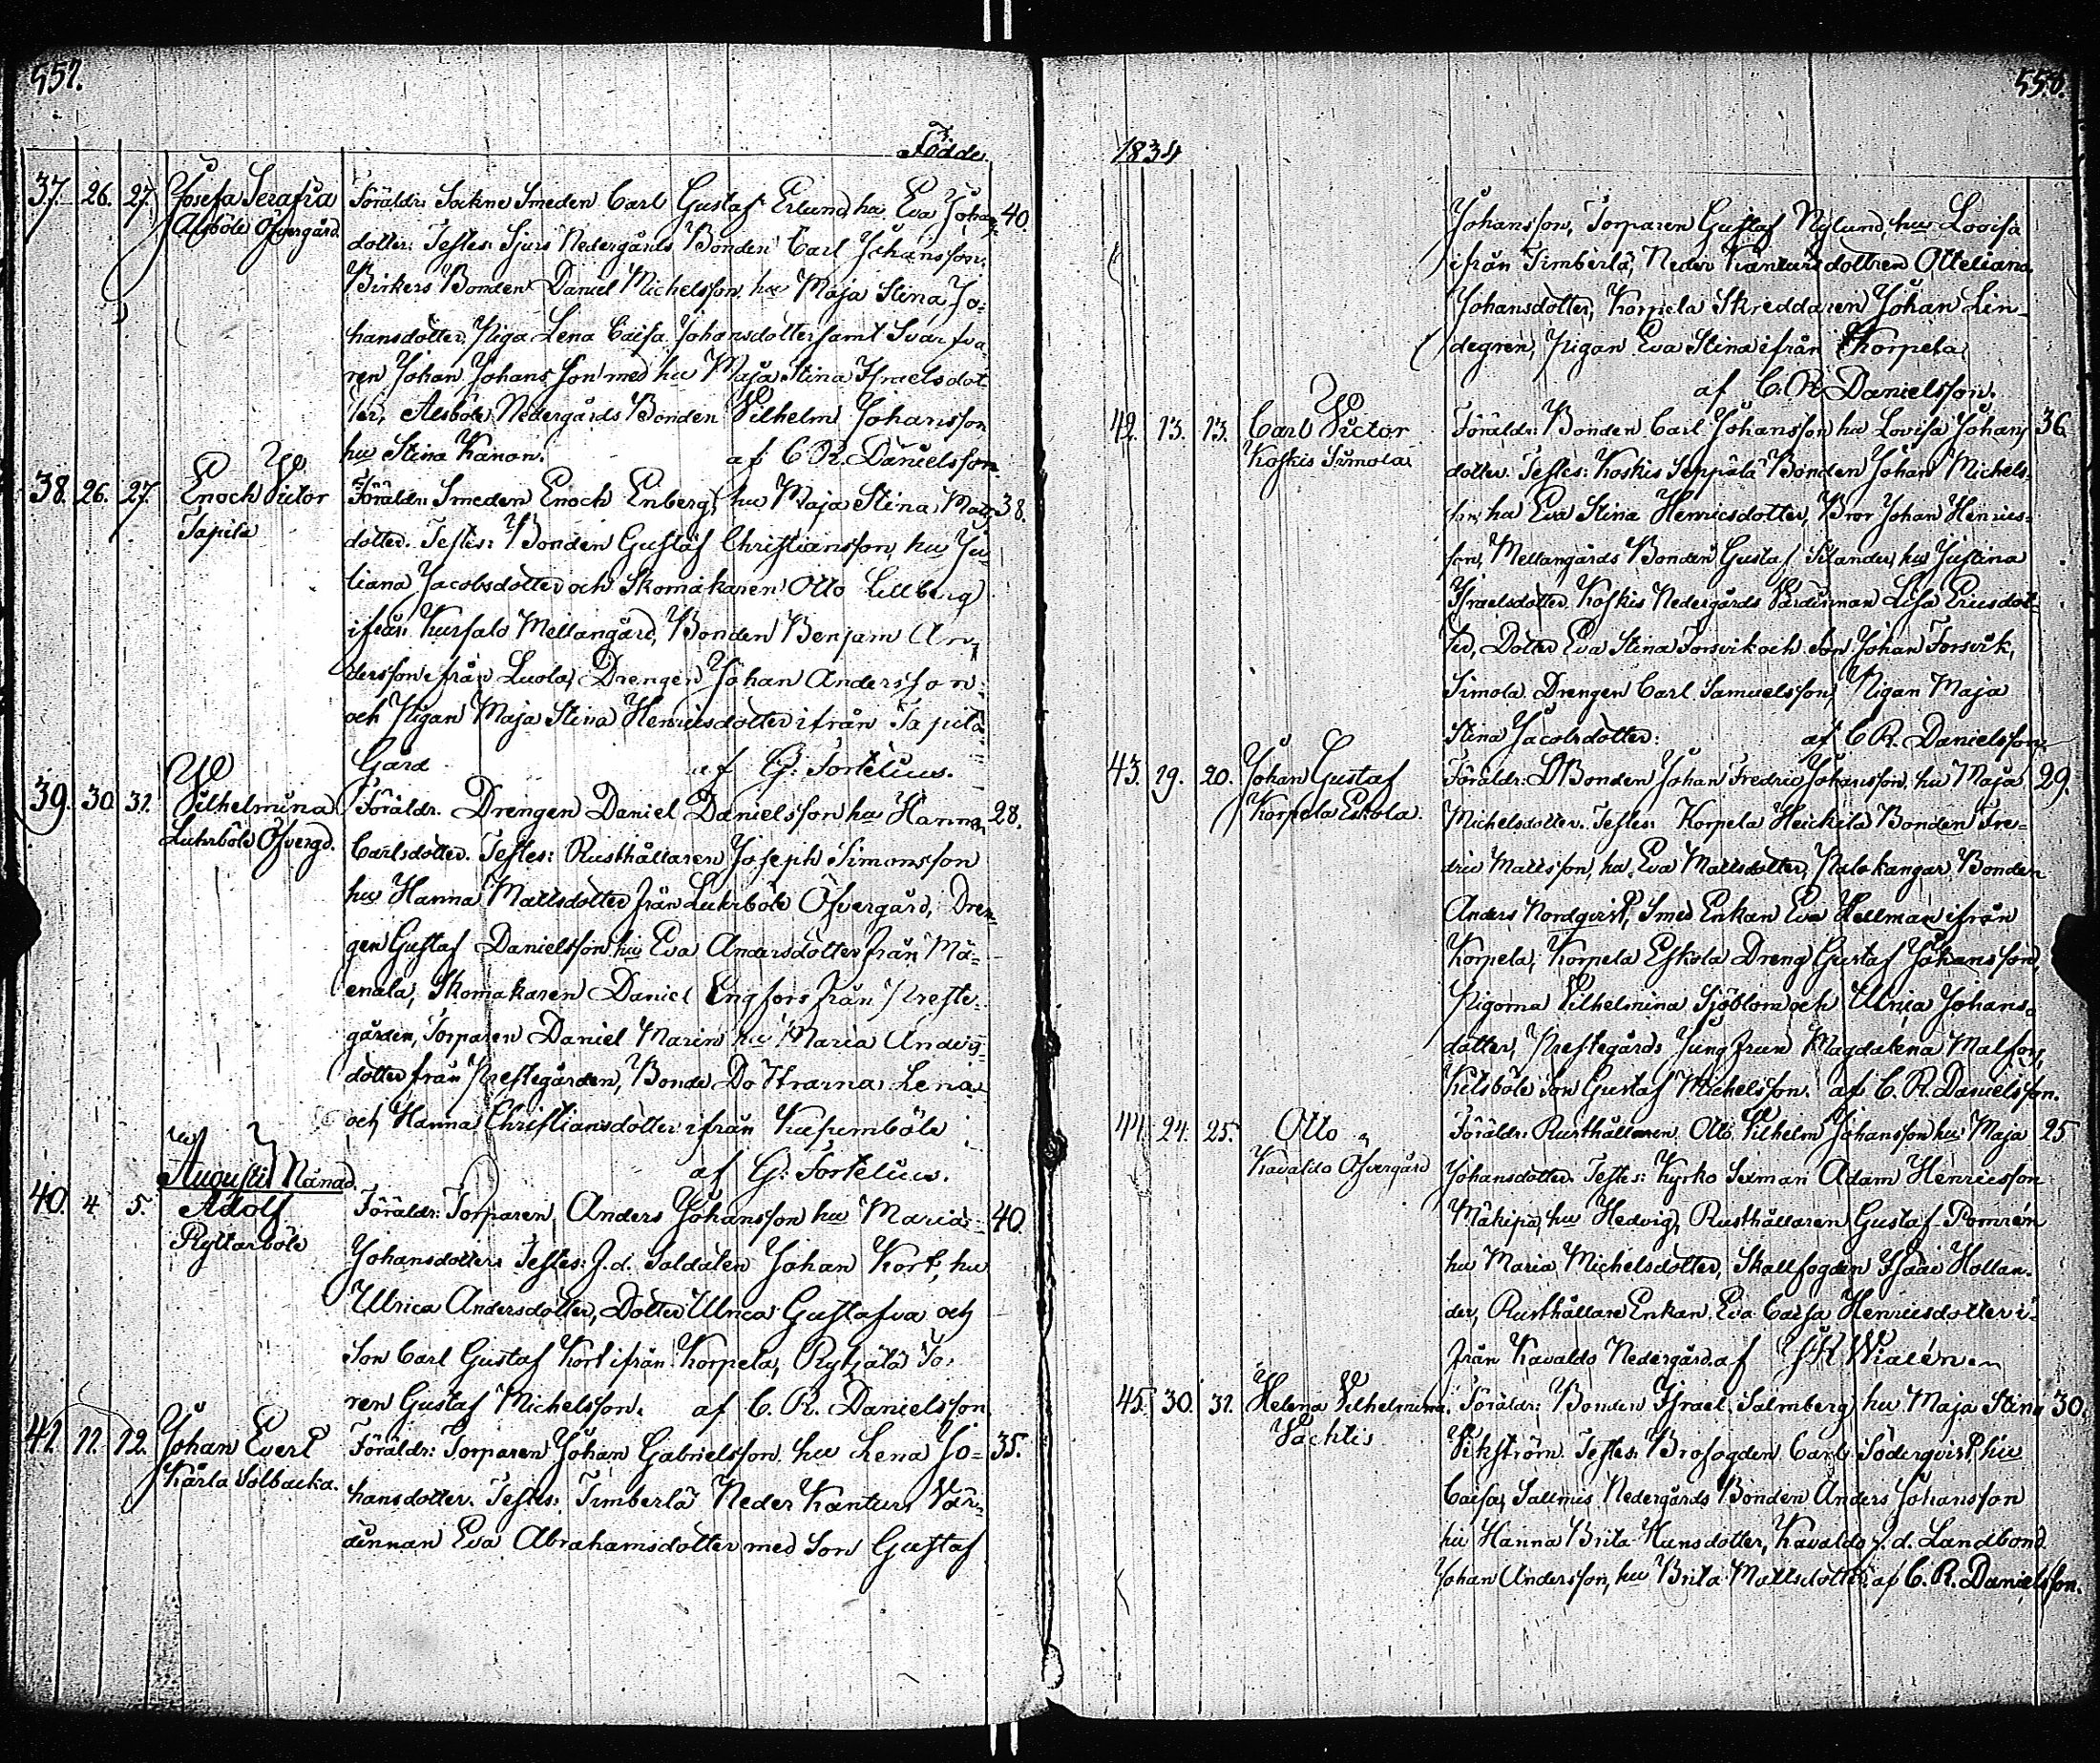 557.
Födde
37. 26. 27. Josefa Serafia Föräldr: Sockne Smeden Carl Gustaf Erlund, hu Eva Johans 40.
Alsböle Öfvergård dotter. Testes: Sjurs Nedergårds Bonden Carl Johansson,
Birkers Bonden Daniel Michelsson hu Maja Stina Jo=
hansdotter, Piga Lena Caisa Johansdotter samt Svarfva
ren Johan Johansson med hu Maja Stina Israelsdot
ter, Alsböle Nedergårds Bonden Vilhelm Johansson
hu Stina Kanon. af C R. Danielsson
38. 26. 27. Enoch Victor Föräldr: Smeden Enoch Enberg, hu Maja Stina Matts 38.
Tapila dotter. Testes: Bonden Gustaf Christiansson, hu Ju
liana Jacobsdotter och Skomakaren Otto Lillberg
ifrån Kursalo Mellangård, Bonden Benjam An=
dersson ifrån Luola, Drengen Johan Andersson
och Pigan Maja Stina Henricsdotter ifrån Tapila
Gård af G: Fortelius.
39. 30. 31. Vilhelmina Föräldr. Drengen Daniel Danielsson hu Hanna 28.
Luhrböle Öfvergd. Carlsdotter. Testes: Rusthållaren Joseph Simonsson
hu Hanna Mattsdotter från Luhrböle Öfvergård, Dren=
gen Gustaf Danielsson hu Eva Andersdotter från Mä=
enala, Skomakaren Daniel Engfors från Preste
gården, Torparen Daniel Marin hu Maria Anders
dotter från Prestegården, Bonde Döttrarna Lena
och Hanna Christiansdotter ifrån Kusumböle
af G: Fortelius.
Augusti Månad.
40. 4. 5. Adolf Föräldr: Torparen Anders Johansson hu Maria 40.
Ryttarböle Johansdotter. Testes: f.d. Soldaten Johan Kort, hu
Ulrica Andersdotter, Dotter Ulrica Gustafva och
Son Carl Gustaf Kort ifrån Korpela, Rytjälä To
ren Gustaf Michelsson. af C. R. Danielsson
41. 11. 12. Johan Evert Föräldr: Torparen Johan Gabrielsson hu Lena Jo= 35.
Kärla Solbacka. hansdotter. Testes: Timberlä Neder Kanturs Vär=
dinnan Eva Abrahamsdotter med Son Gustaf
558.
1834
Johansson, Torparen Gustaf Nylund, hu Lovisa
ifrån Timberlä, Neder Kanturs dottren Otteliana
Johansdotter, Korpela Skreddaren Johan Lin=
degren, Pigan Eva Stina ifrån Korpela
af C. R Danielsson.
42. 13. 13. Carl Victor Föräldr: Bonden Carl Johansson hu Lovisa Johans 36.
Koskis Simola dotter. Testes: Koskis Seppälä Bonden Johan Michels=
son, hu Eva Stina Henricsdotter, Bror Johan Henrics=
son, Mellangårds Bonden Gustaf Silander, hu Justina
Israelsdotter, Koskis Nedergårds Värdinnan Lisa Ericsdot=
ter, Dotter Eva Stina Forsvik och Son Johan Forsvik,
Simola Drengen Carl Samuelsson, Pigan Maja
Stina Jacobsdotter: af C R. Danielsson
43. 19. 20. Johan Gustaf Föräldr: LBonden Johan Fredric Johansson, hu Maja 29.
Korpela Eskola. Michelsdotter. Testes: Korpela Heickilä Bonden Fre=
dric Mattsson, hu Eva Mattsdotter, Palokangas Bonden
Anders Nordqvist, Smed Enkan Eva Hellman ifrån
Korpela, Korpela Eskola Dreng Gustaf Johansson,
Pigorna Vilhelmina Sjöblom och Ulrica Johans=
dotter, Prestegårds Jungfrun Magdalena Malfors,
Kitsböle Son Gustaf Michelsson. af C. R. Danielsson.
44. 24. 25. Otto Föräldr: Rusthållaren Otto Vilhelm Johansson hu Maja 25
Kavaldo Öfvergård Johansdotter. Testes: Kyrko Sexman Adam Henricsson
Mäkipä, hu Hedvig, Rusthållaren Gustaf Pomrén
hu Maria Michelsdotter, Skallfogden Isaac Hollan=
der, Rusthållare Enkan Eva Caisa Henricsdotter i=
från Kavaldo Nedergård. af
45. 30. 31. Helena Vilhelmina. Föräldr: Bonden Israel Salmberg hu Maja Stina 30.
Vachtis Vikström. Testes: Brofogden Carl Söderqvist, hu
Caisa, Sallmis Nedergårds Bonden Anders Johansson
hu Hanna Brita Hansdotter, Kavaldo f.d. Landbond.
Johan Andersson, hu Brita Mattsdotter. af C. R. Danielsson.